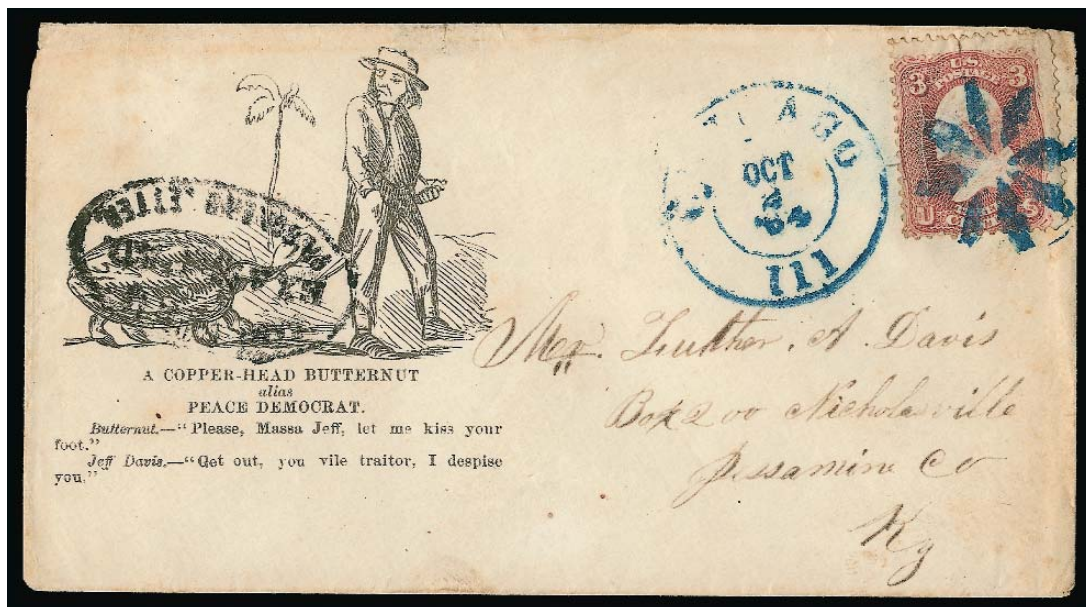 U.S.
POSTAGE
3 3
U S
CHICAGO
OCT
64
Ill
A COPPER-HEAD BUTTERNUT
alias
PEACE DEMOCRAT.
Butternut.—“Please, Massa Jeff, let me kiss your
foot.”
Jeff Davis.—“Get out, you vile traitor, I despise
you.”
Mr. Luther. A. Davis
Box 200 Nicholasville
Jessamine Co
Ky